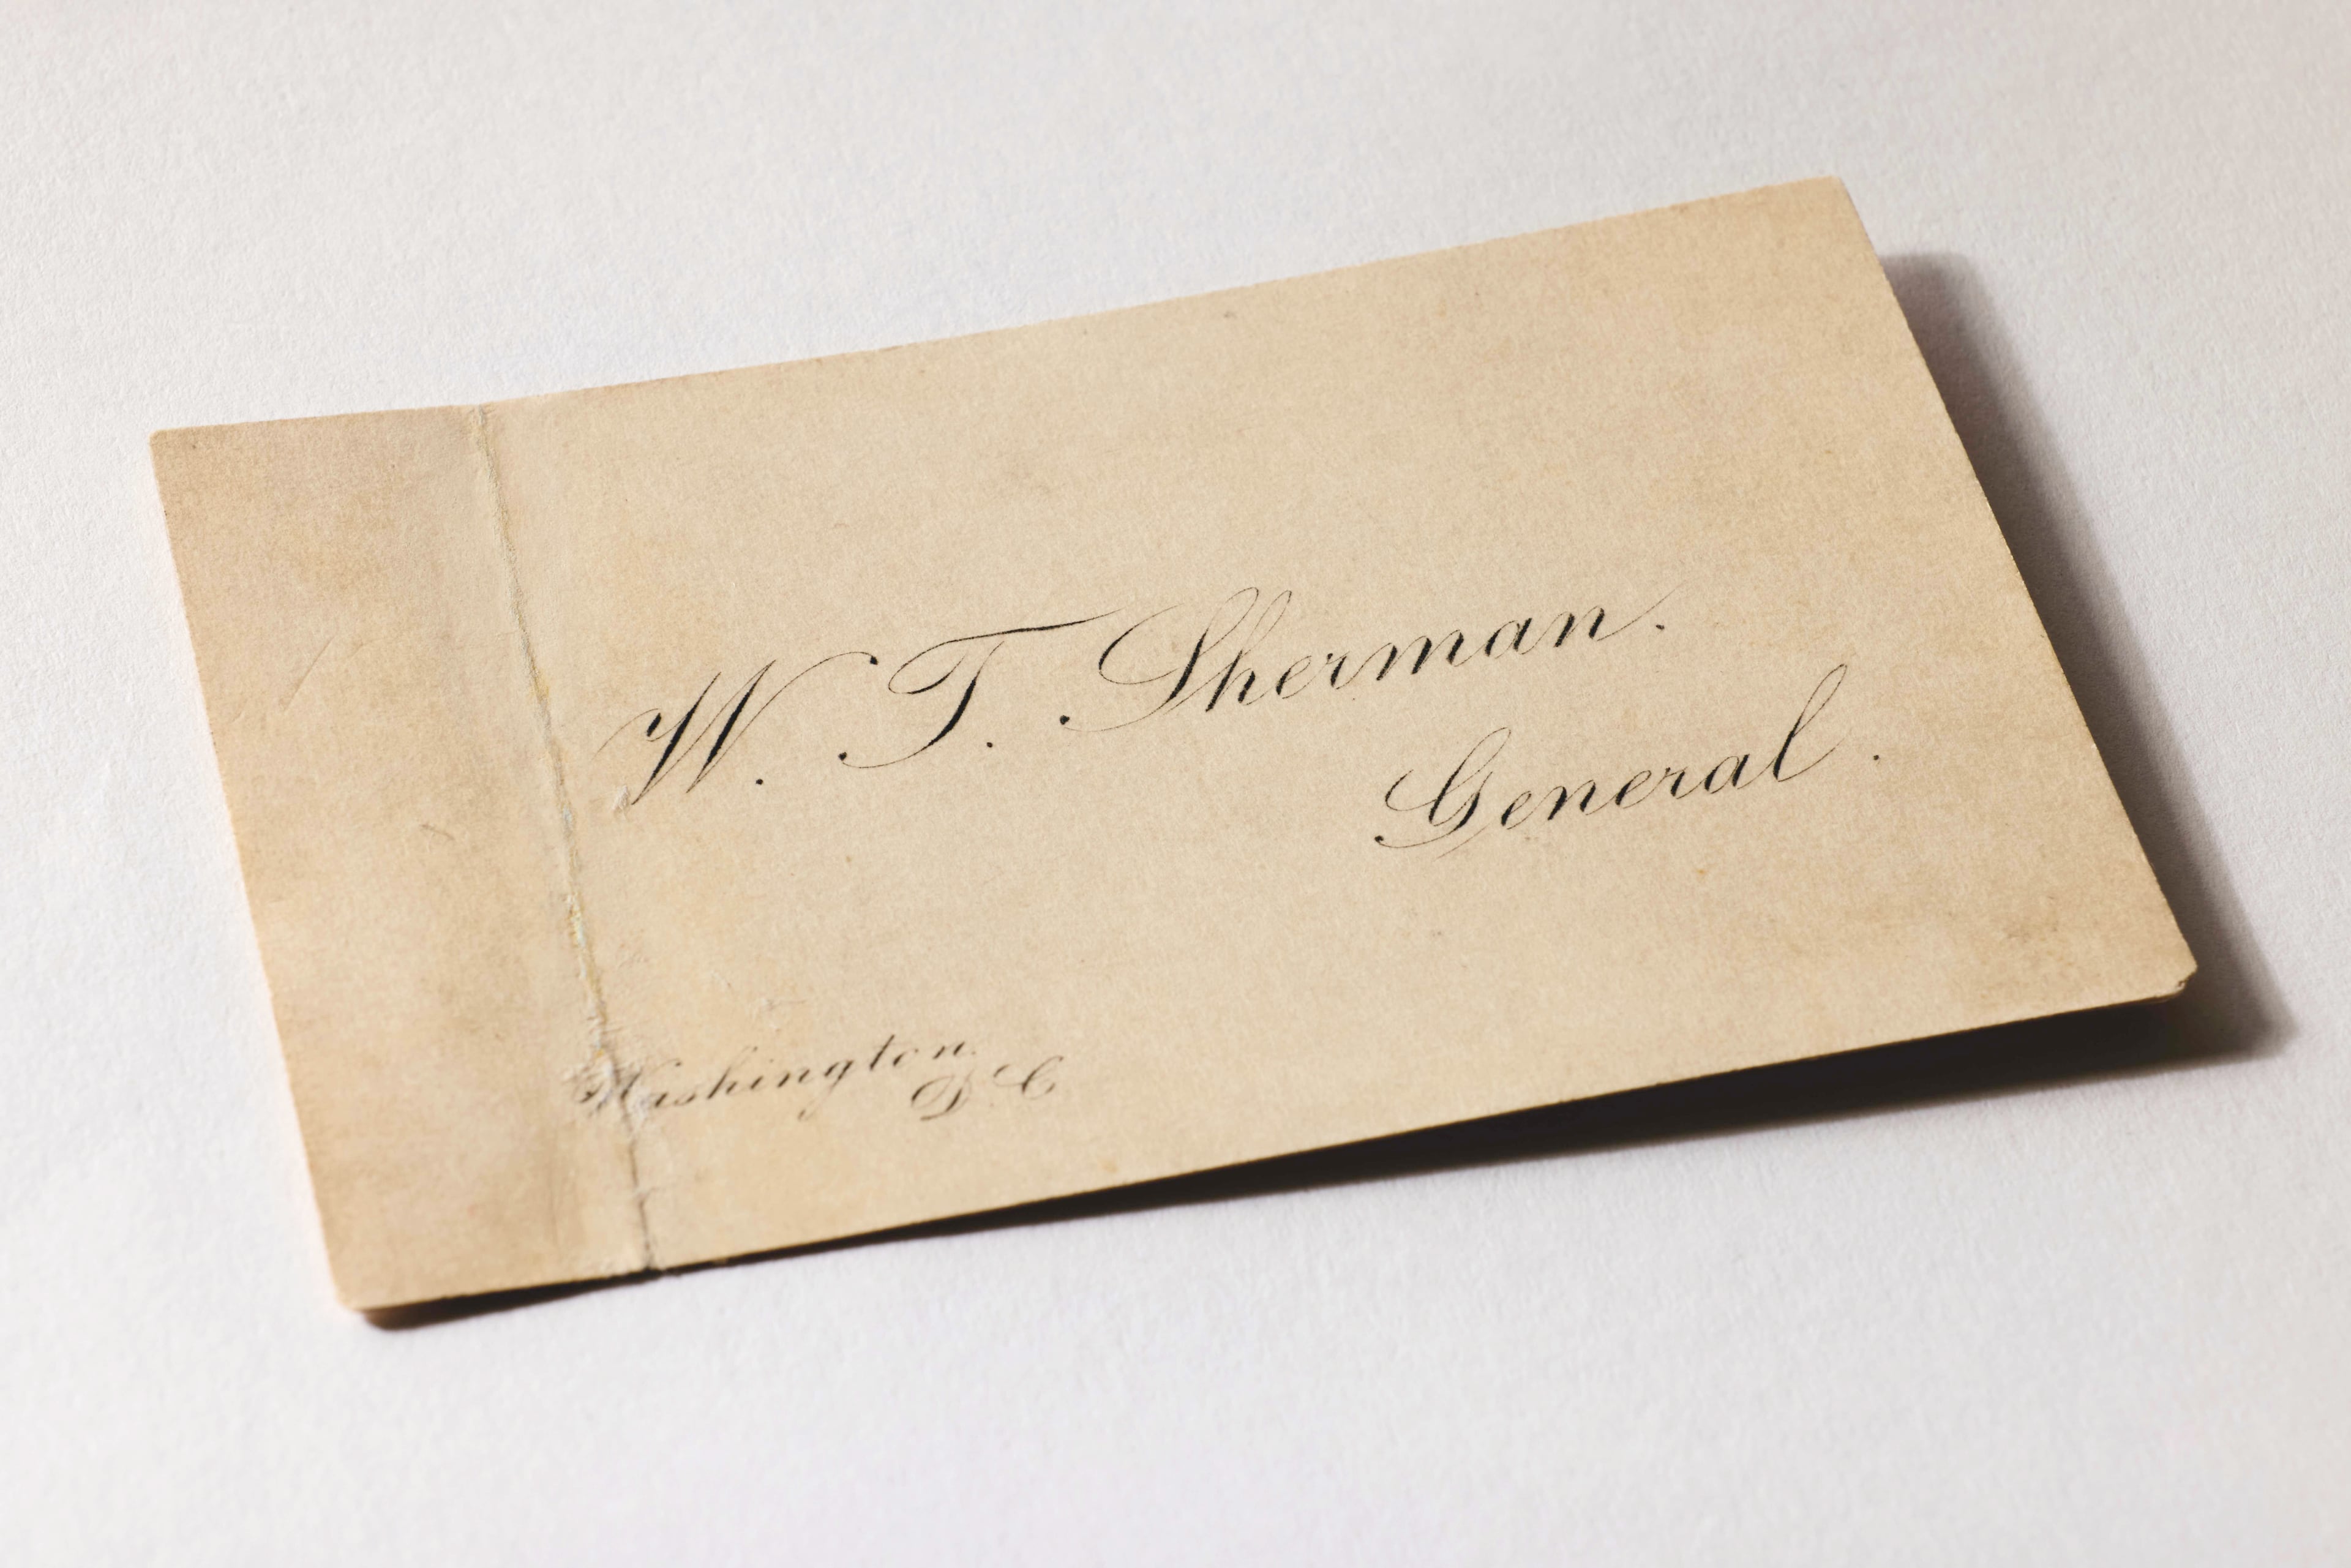 W. T. Sherman.
General.
Washington
D.C